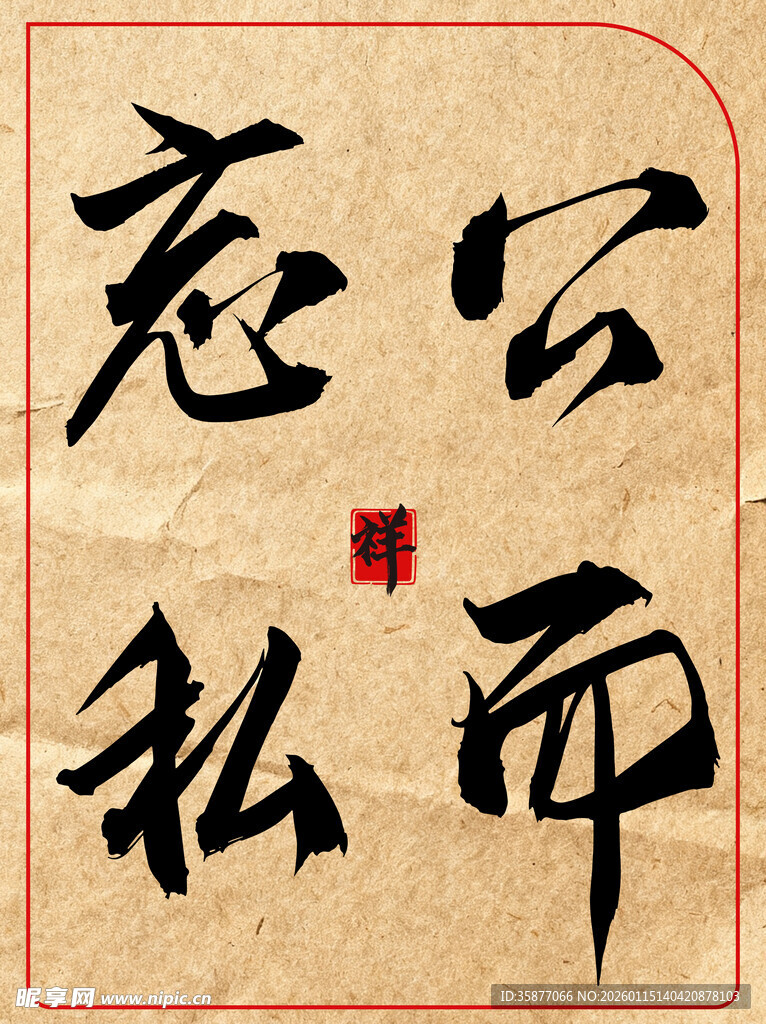 公而
忘私
祥
昵享网 www.nipic.cn
ID:35877066 NO:20260115140420878103